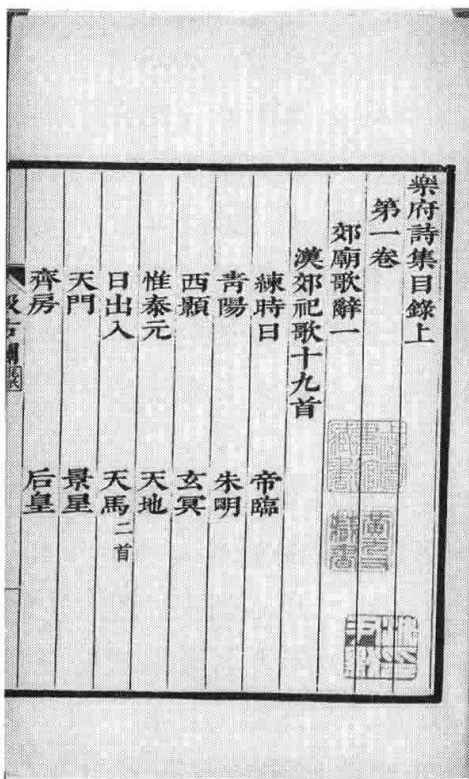 樂府詩集目錄上
第一卷
郊廟歌辭一
漢郊祀歌十九首
練時日 帝臨
青陽 朱明
西顥 玄冥
惟泰元 天地
日出入 天馬二首
天門 景星
齊房 后皇
汲古閣